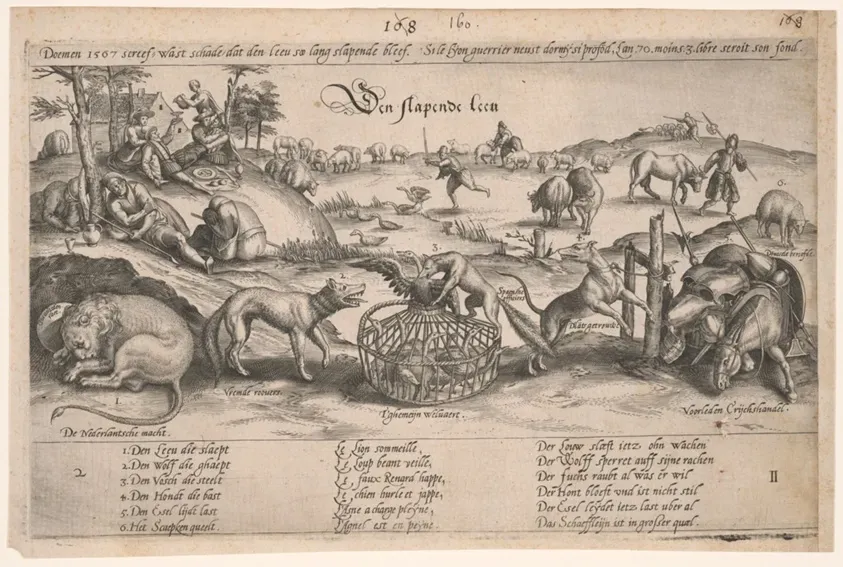 168 160. 168
Doemen 1567 screef, wast schade, dat den leeu soe lang slapende bleef. Si le Lyon guerrier neust dormy si profōd, Lan 70. moins 3. libre seroit son fond.
Den slapende leeu
6.
Vrouwde
2.
3.
4.
Spaensche officiers
1.
Vremde roovers.
Tghemeijn welvaert.
Voorleden Crijchshandel.
De Nederlantsche macht.
1. Den Leeu die slaept
2. Den Wolf die ghaept
3. Den Vosch die steelt
4. Den Hondt die bast
5. Den Esel lijdt last
6. Het Scaepken queelt.
2
Le Lion sommeille,
Le Loup beant veille,
Le faux Renard happe,
Le chien hurle et jappe,
L'Asne a charge pleyne,
L'Agnel est en peyne.
Der Louw slæft ietz ohn wachen
Der Wolff sperret auff sijne rachen
Der fuchs raubt al was er wil
Der Hont bloeft vnd ist nicht stil
Der Esel leijdet ietz last uber al
Das Schaefflijn ist in grosser quæl.
II